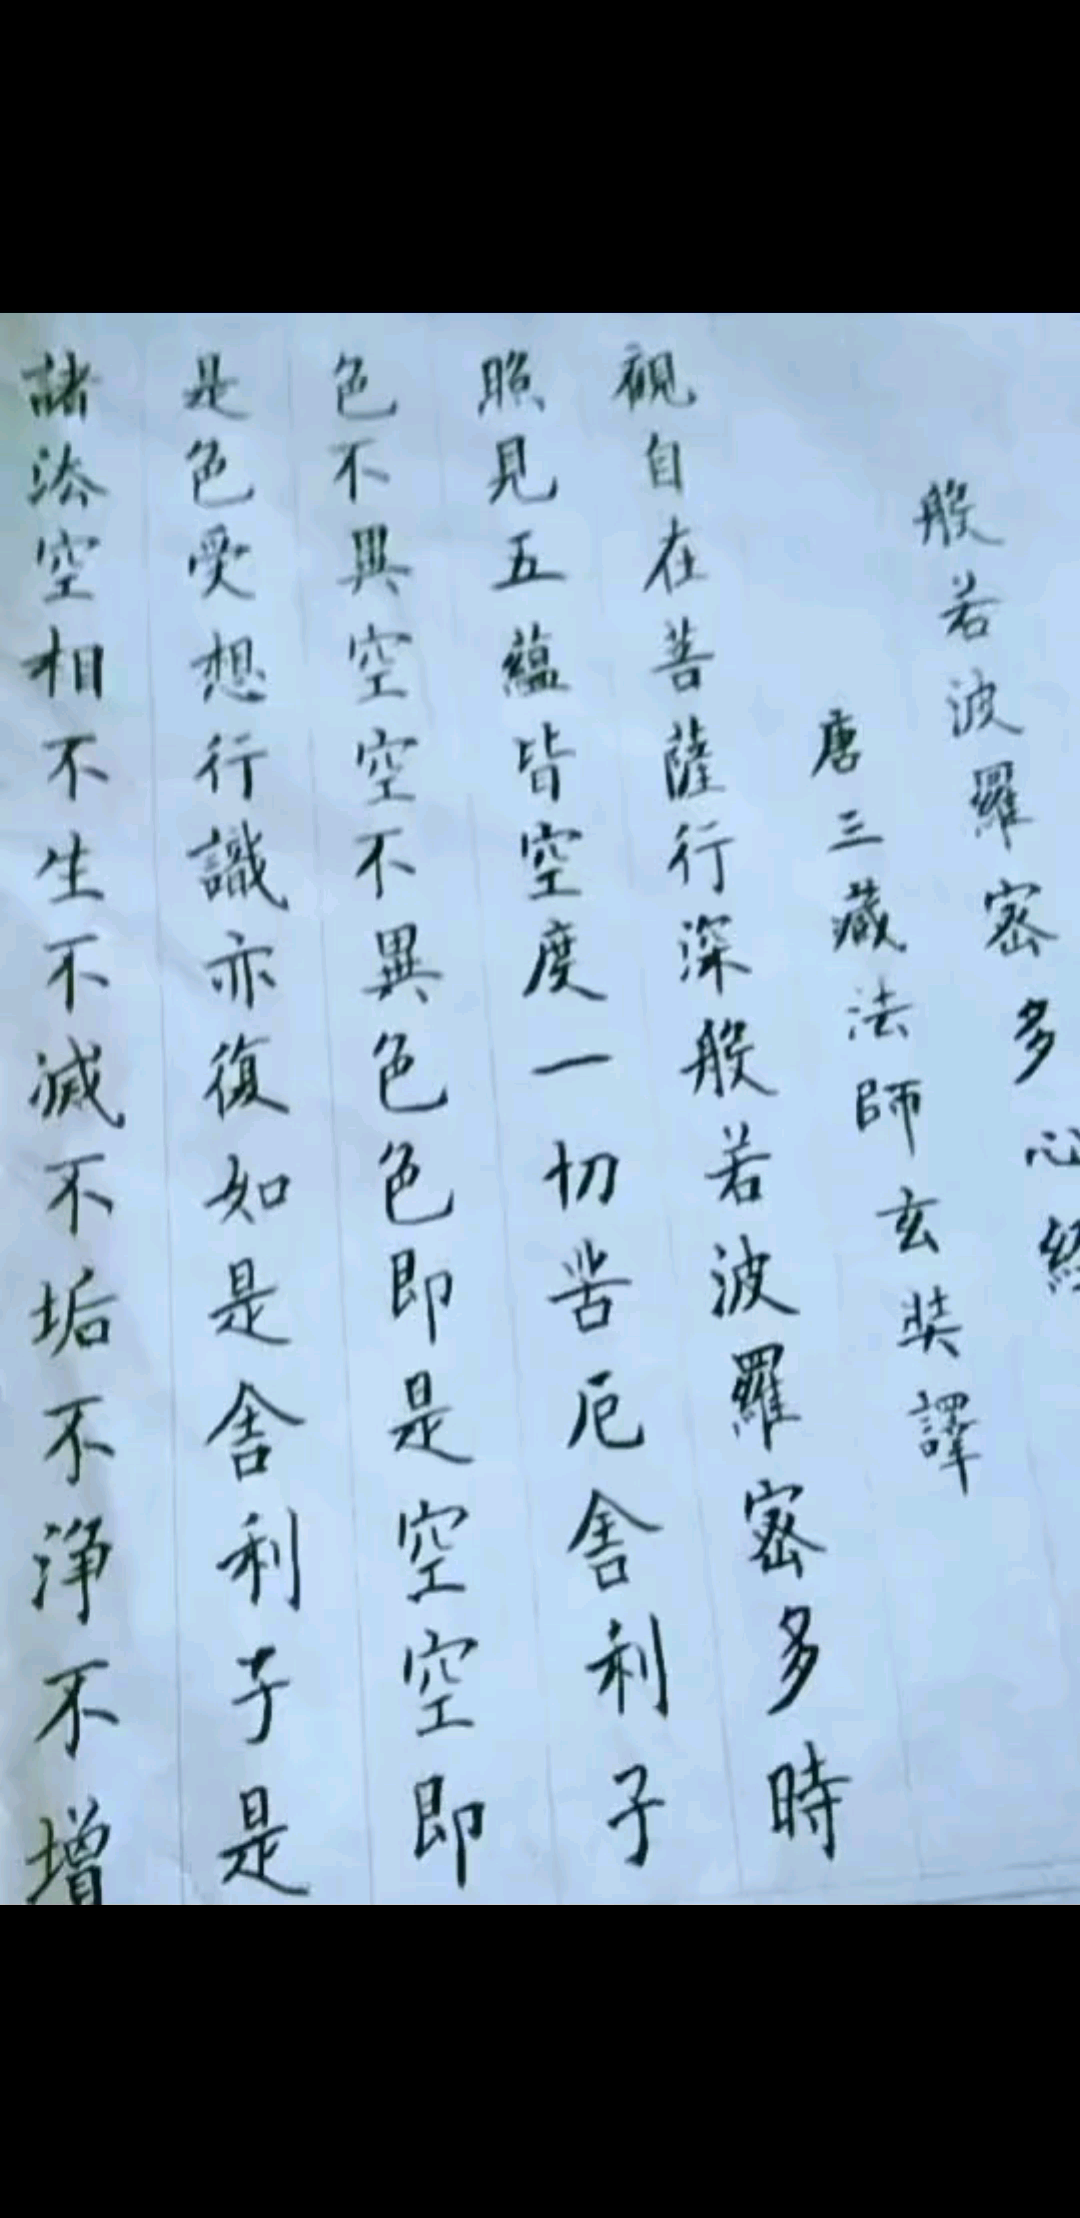 般若波羅密多心經
唐三藏法師玄奘譯
觀自在菩薩行深般若波羅密多時
照見五蘊皆空度一切苦厄舍利子
色不異空空不異色色即是空空即
是色受想行識亦復如是舍利子是
諸法空相不生不滅不垢不淨不增